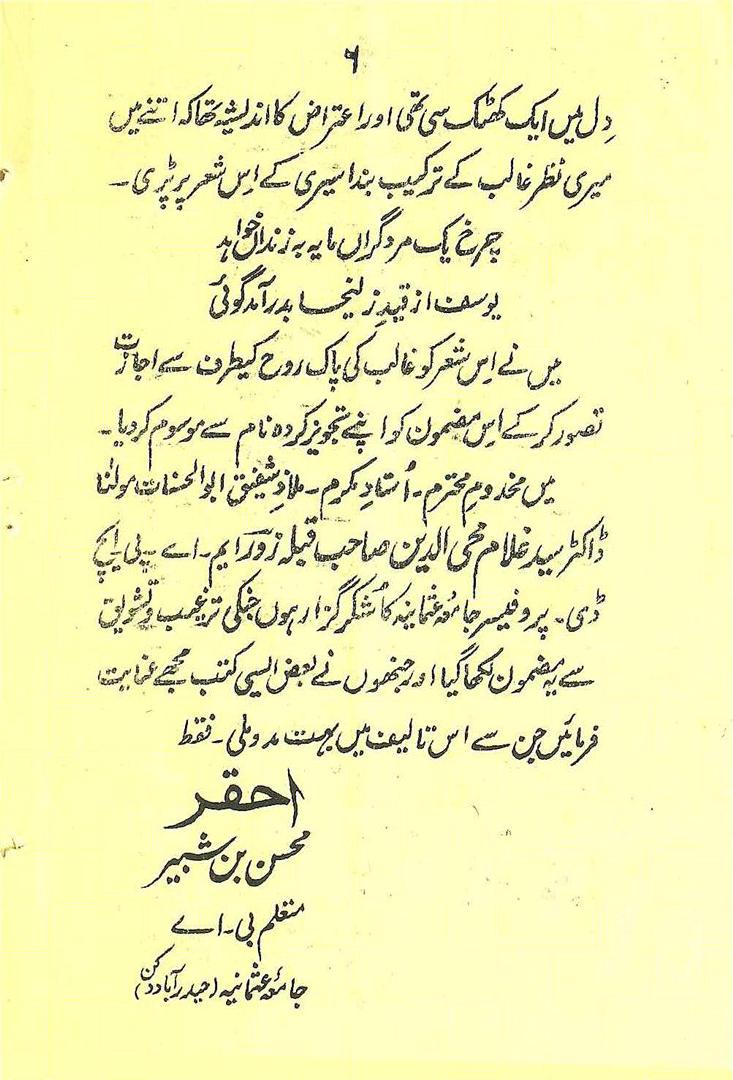 ۶
دِل میں ایک کھٹک سی تھی اور اعتراض کا اندیشہ تھا کہ اتنے میں
میری نظر غالب کے ترکیب بند اسیری کے اِس شعر پر پڑی ۔
چرخ یک مرد گراں مایہ بہ زنداں خواہد
یوسف از قیدِ زلیخا بدر آمد گوئی
میں نے اِس شعر کو غالب کی پاک روح کیطرف سے اجازت
تصور کر کے اِس مضمون کو اپنے تجویز کردہ نام سے موسوم کردیا ۔
میں مخدومِ محترم ۔ اُستادِ مکرم ۔ ملاذِ شفیق ابوالحسنات مولٰنا
ڈاکٹر سید غلام محی الدین صاحب قبلہ زورؔ ایم ۔ اے ۔ پی ایچ
ڈی ۔ پروفیسر جامعہ عثمانیہ کا شُکر گزار ہوں جنکی ترغیب و تشویق
سے یہ مضمون لکھا گیا اور جنھوں نے بعض ایسی کتب مجھے عنایت
فرمائیں جن سے اس تالیف میں بہت مدد ملی ۔ فقط
احقر
محسن بن شبیر
متعلم بی ۔ اے
جامعۂ عثمانیہ (حیدرآباد دکن)